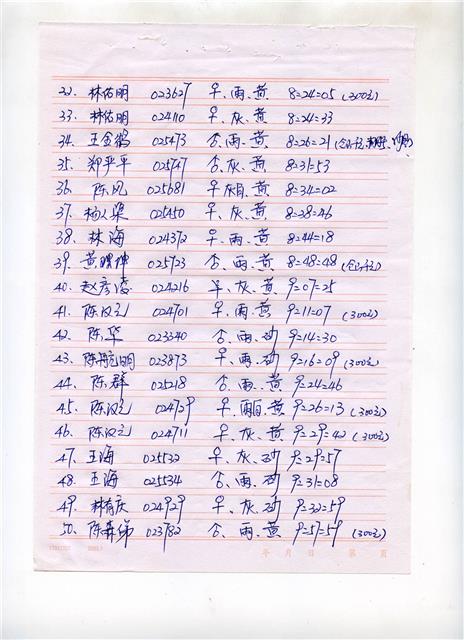 32、林佑明 023627 早、雨、黄 8=24=05 (300元)
33、林佑明 024110 早、灰、黄 8=24=33
34、王金鹤 025473 杏、雨、黄 8=26=21
35、郑平平 025747 杏、灰、黄 8=31=53
36、陈凤 025681 早、灰、黄 8=34=02
37、杨 025450 早、灰、黄 8=38=46
38、林海 024372 早、雨、黄 8=44=18
39、黄 025723 杏、雨、黄 8=48=48
40、赵彦 024216 早、灰、黄 9=07=25
41、陈汉元 024701 早、雨、黄 9=11=07 (300元)
42、陈华 023340 杏、雨、砂 9=14=30
43、陈航明 023873 早、雨、砂 9=16=09 (300元)
44、陈群 025218 杏、雨、 9=24=46
45、陈汉元 024729 早、雨、黄 9=26=13 (300元)
46、陈汉元 024711 早、灰、黄 9=29=42 (300元)
47、王海 025532 早、灰、砂 9=29=57
48、王海 025534 杏、雨、砂 9=31=08
49、林有庆 024929 早、灰、砂 9=32=59
50、陈森 023782 杏、雨、黄 9=57=59 (300元)
年 月 日 第 页